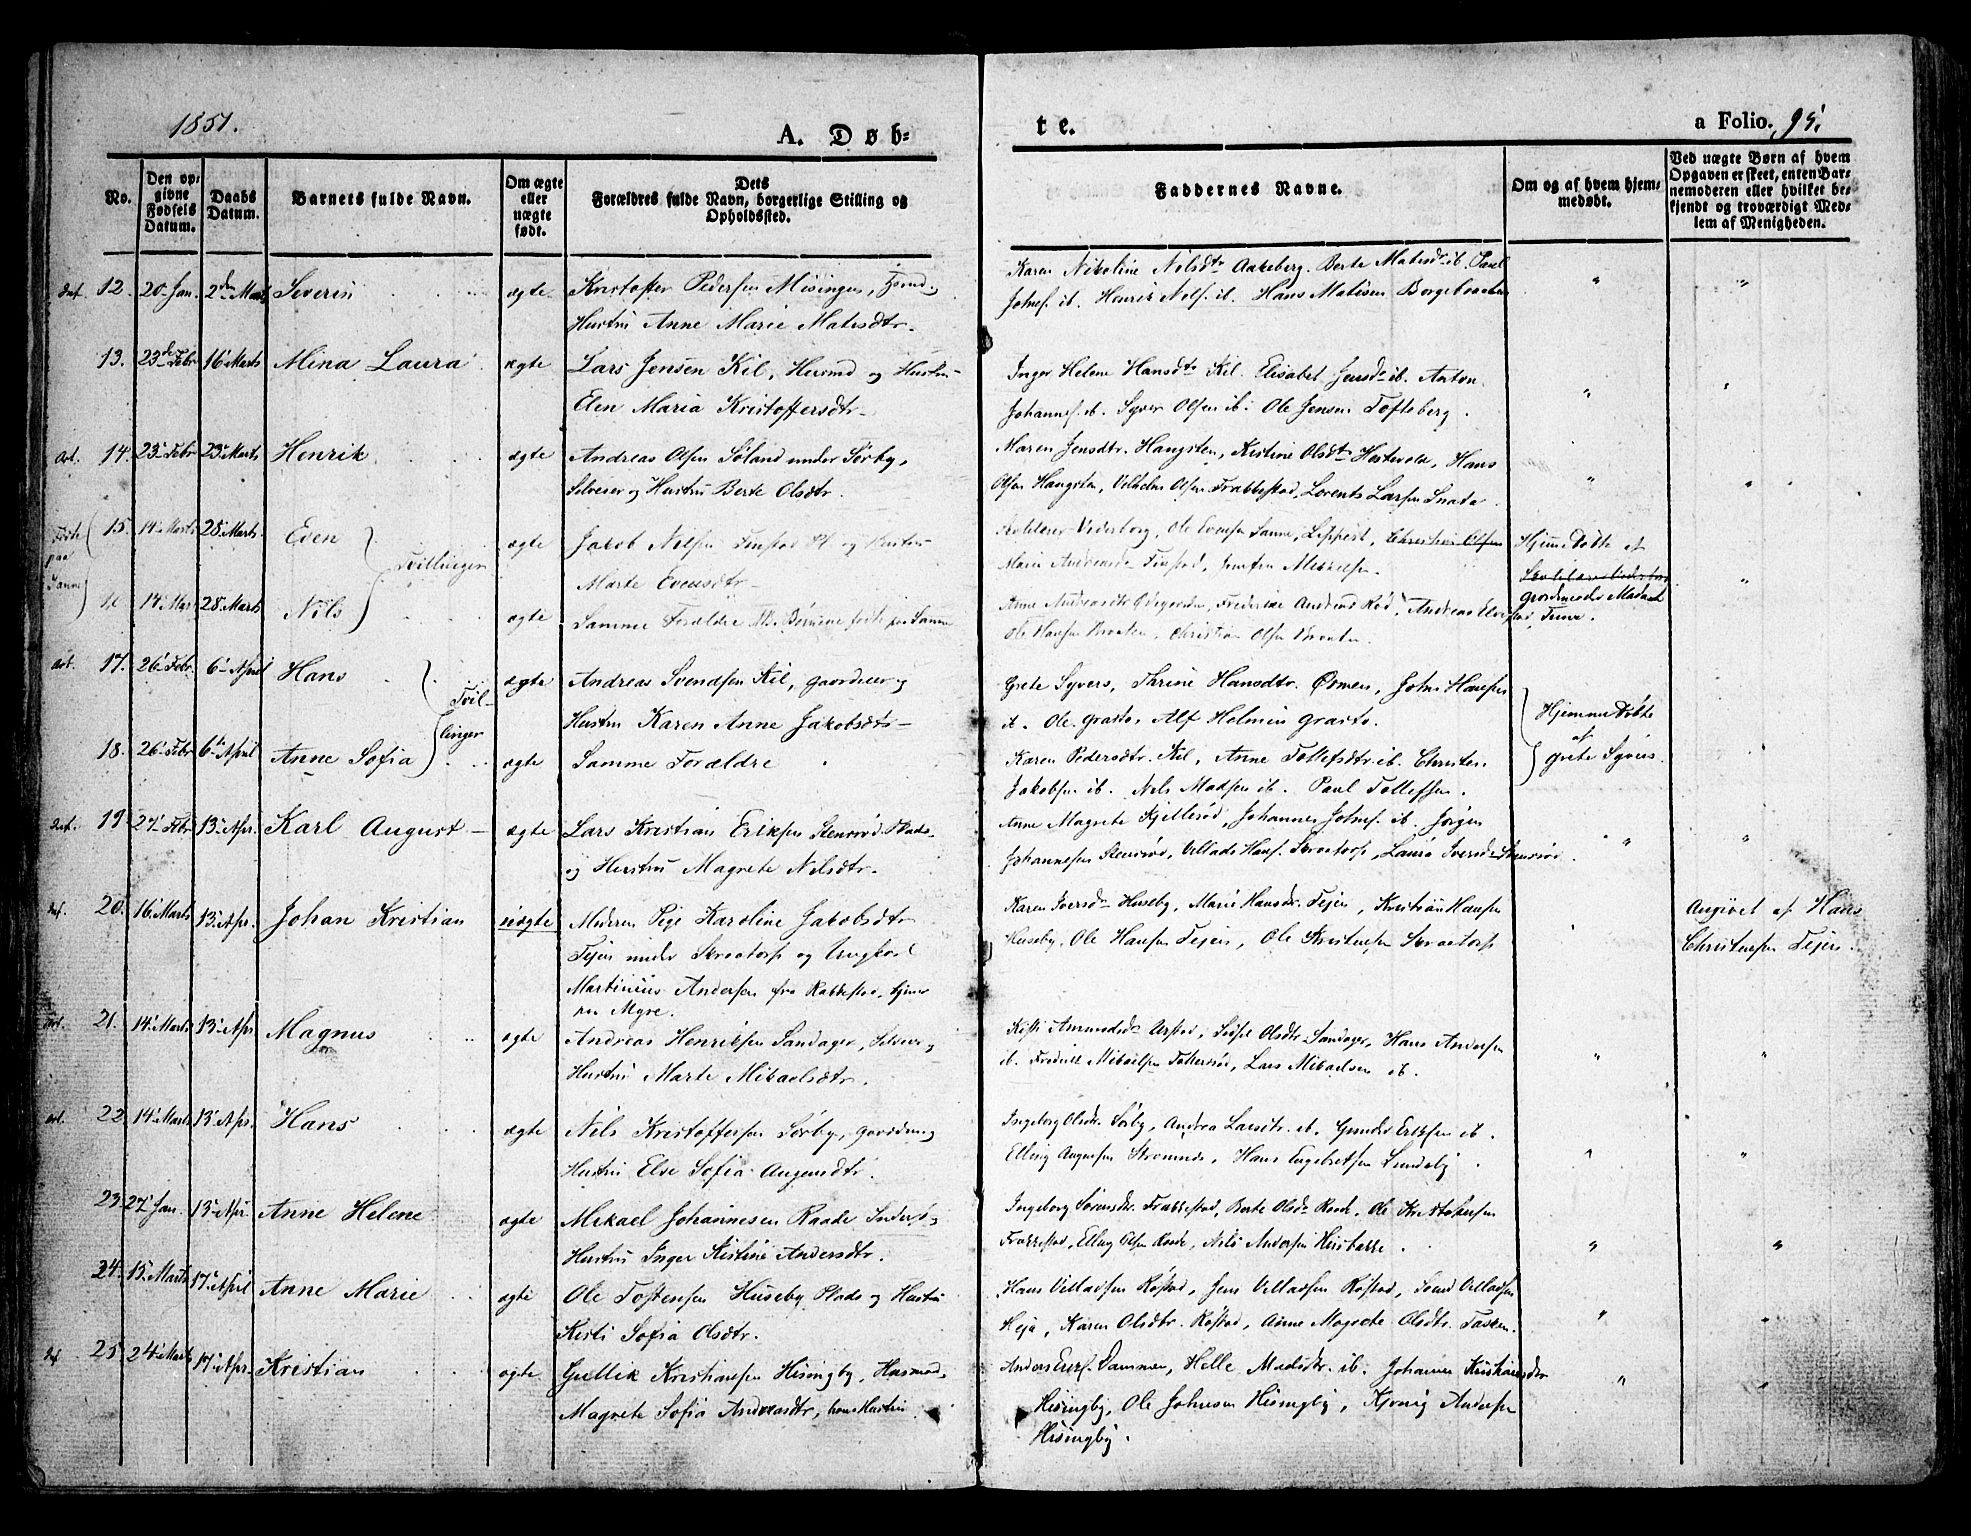 1851.
A. Døb=
te.
a Folio. 95.
No.
Den op=
givne
Fødsels
Datum.
Daabs
Datum.
Barnets fulde Navn.
Om ægte
eller
uægte
født.
Dets
Forældres fulde Navn, borgerlige Stilling og
Opholdssted.
Faddernes Navne.
Om og af hvem hjem=
medøbt.
Ved uægte Børn af hvem
Opgaven er skeet, enten Bar=
nemoderen eller hvilket be=
kjendt og troværdigt Med=
lem af Menigheden.
12. 20 Jan. 2den Marts Severin ægte Kristoffer Pedersen Misingen,
Hustru Anne Marie Matisdtr.
Karen Nikoline Nilsdtr Aakeberg. Berte Matisdtr ib. Paul
Johns. ib. Henrik Nels. ib. Hans Matisen Borgebraaten
13. 23de Febr 16 Marts Mina Laura ægte Lars Jensen Kil, Husmd og Hustru
Elen Maria Kristoffersdtr
Inger Helene Hansdtr Kil. Elisabet Jensd ib. Anton
Johannes. ib. Syver Olsen ib. Ole Jensen Tofteberg.
14. 23 Febr 23 Marts Henrik ægte Andreas Olsen Søland under Sørby,
Selveier og Hustru Berte Olsdtr.
Maren Jensdtr. Hangsten, Kistine Olsdtr Hostvedt, Hans
Olsen Hangsten, Vilhelm Olsen Frabbestad, Lorents Larsen
15. 14 Marts 28 Marts Even Tvillinger ægte Jakob Nilsen Finstad og Hustru
Marte Evensdtr
Ole Evensen Sanne, Lippert, Christian Olsen
Marie Andreasdtr Finstad, Mikkelsen.
Hjemmedøbte af
gjordemoder Madam
Førte
paa
Sanne
16 14 Mars 28 Marts Nils ægte Samme Forældre NB. Børnene førte paa Sanne
Anne Andreasdtr Frederikke Andreas Rød, Andreas
Ole Hansen Braaten, Christian Olsen Braaten
17. 26 Febr 6 April Hans Tvil=
ægte Andreas Svendsen Kil, gaardeier og
Hustru Karen Anne Jakobsdtr
Grete Syvers, Thrine Hansdtr. Ørmen, John Hansen
ib. Ole Grasto, Alf Holmin Grasto.
Hjemmedøbte
af
Grete Syvers.
18. 26 Febr 6te April Anne Sofia linger ægte Samme Forældre
Karen Pedersdtr. Kil, Anne Tollefsdtr. ib. Christen
Jakobsen ib. Nels Madsen ib. Paul Tollefsen.
19. 27 Febr 13 Apr. Karl August ægte Lars Kristian Eriksen Stensrød Plads
og Hustru Magrete Nilsdtr.
Anne Magrete Kjillerød, Johannes Johns. ib. Jørgen
Johannesen Stensrød, Villads Hans. Skraatorp, Laura Iversd Stensrød.
20. 16 Marts 13 Apr. Johan Kristian uægte Moderen Pige Karoline Jakobsdtr
Tejen under Skraatorp og Ungkarl
Martinius Andersen fra Rabbestad, tjener
paa Myre.
Karen Iversd Huseby, Marie Hansdr. Tejen, Kristian Hansen
Huseby, Ole Hansen Tejen, Ole Kristensen Skraatorp
Angivet af Hans
Christensen Tejen.
21. 14 Marts 13 Apr. Magnus ægte Andreas Henriksen Sandager, Selveier
Hustru Marte Mikaelsdtr.
Kisti Amundsd Olsdtr. Sandager, Hans Andersen
ib. Fredrik Mikaelsen Lars Mikaelsen ib.
22. 14 Marts 13 Apr. Hans ægte Nils Kristoffersen Sørby, gaardm
Hustru Else Sofia Augensdtr.
Ingeborg Olsdr. Sørby, Andrea Larsdtr. ib. Gunder Eriksen ib.
Elling Augensen Stromnes, Hans Engebretsen Lundeby.
23. 27 Jan. 13 Apr. Anne Helene ægte Mikael Johannesen Raade Inders.
Hustru Inger Kistine Andersdtr.
Ingeborg Sørensdr. Frabbestad, Berte Olsd Raade. Ole Kristofersen
Frabbestad, Elling Olsen Raade, Nils Andersen Hisbakke.
24. 15 Marts 17 April Anne Marie ægte Ole Tostensen Huseby Plads og Hustru
Kisti Sofia Olsdtr.
Hans Villadsen Røstad, Jens Villadsen Røstad, Svend Villadsen
Heja, Karen Olsdtr. Røstad, Anne Magrete Olsdtr. Tasken.
25. 24 Marts 17 Apr. Kristian ægte Gullik Kristiansen Hisingby, Husmd,
Magrete Sofia Andreasdtr, hans Hustru
Anders Erics. Dammen, Helle Madsdr. ib. Johanne Kristiansdr
Hisingby, Ole Johnsen Hisingby, Andersen
Hisingby.